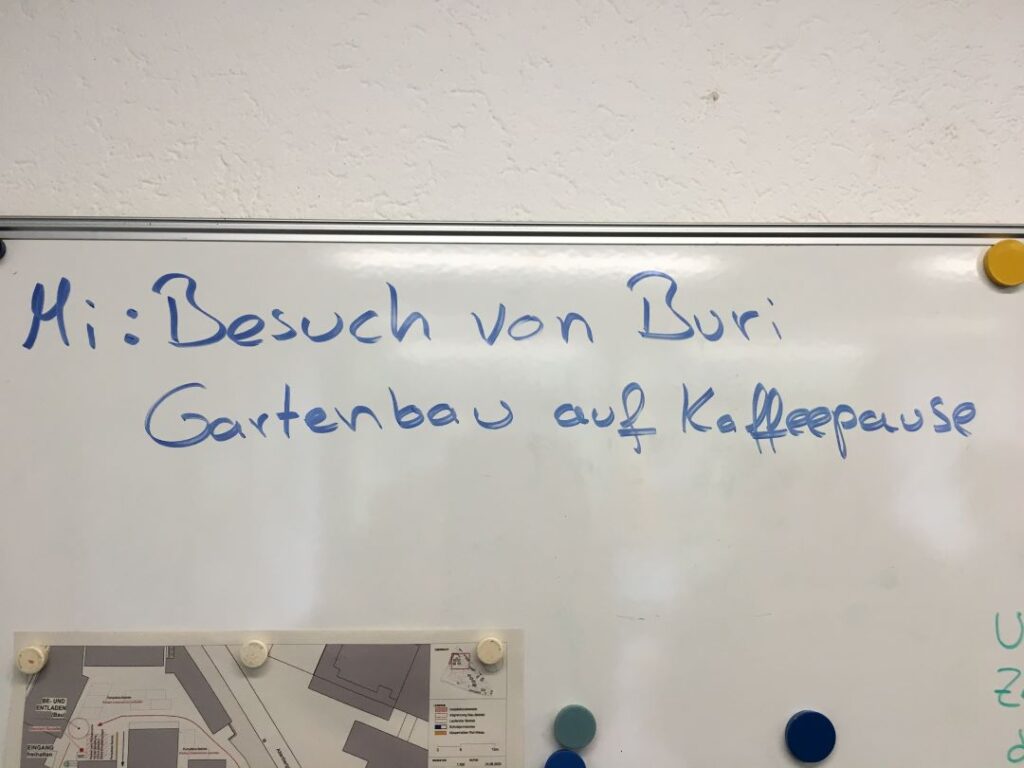 Mi: Besuch von Buri
Gartenbau auf Kaffeepause
BE- UND
ENTLADEN
EINGANG
U